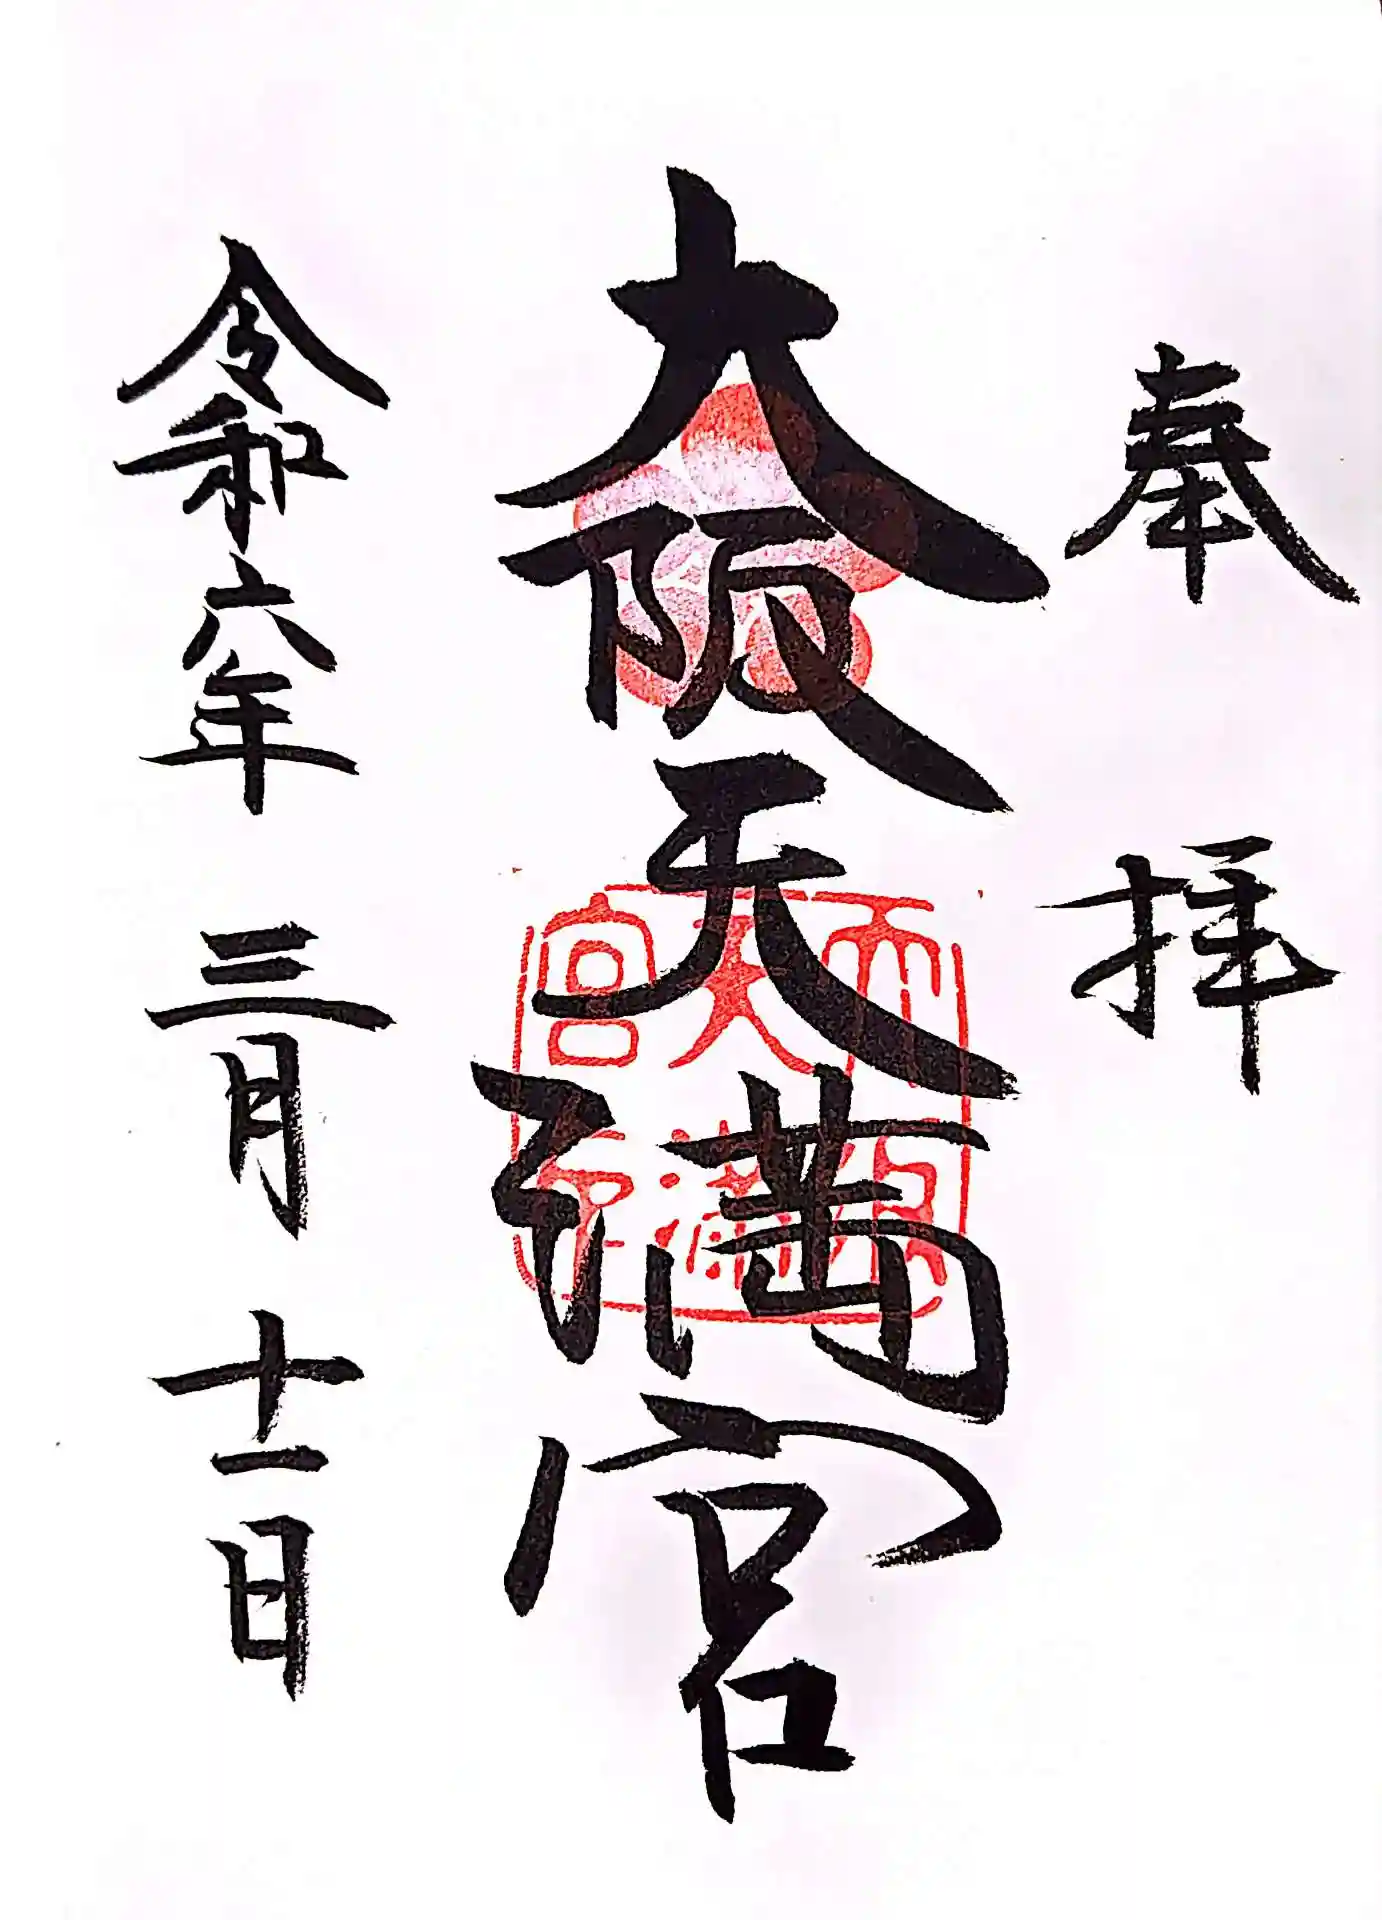 奉拝
大阪天満宮
令和六年 三月 十一日
大阪
天満
宮印